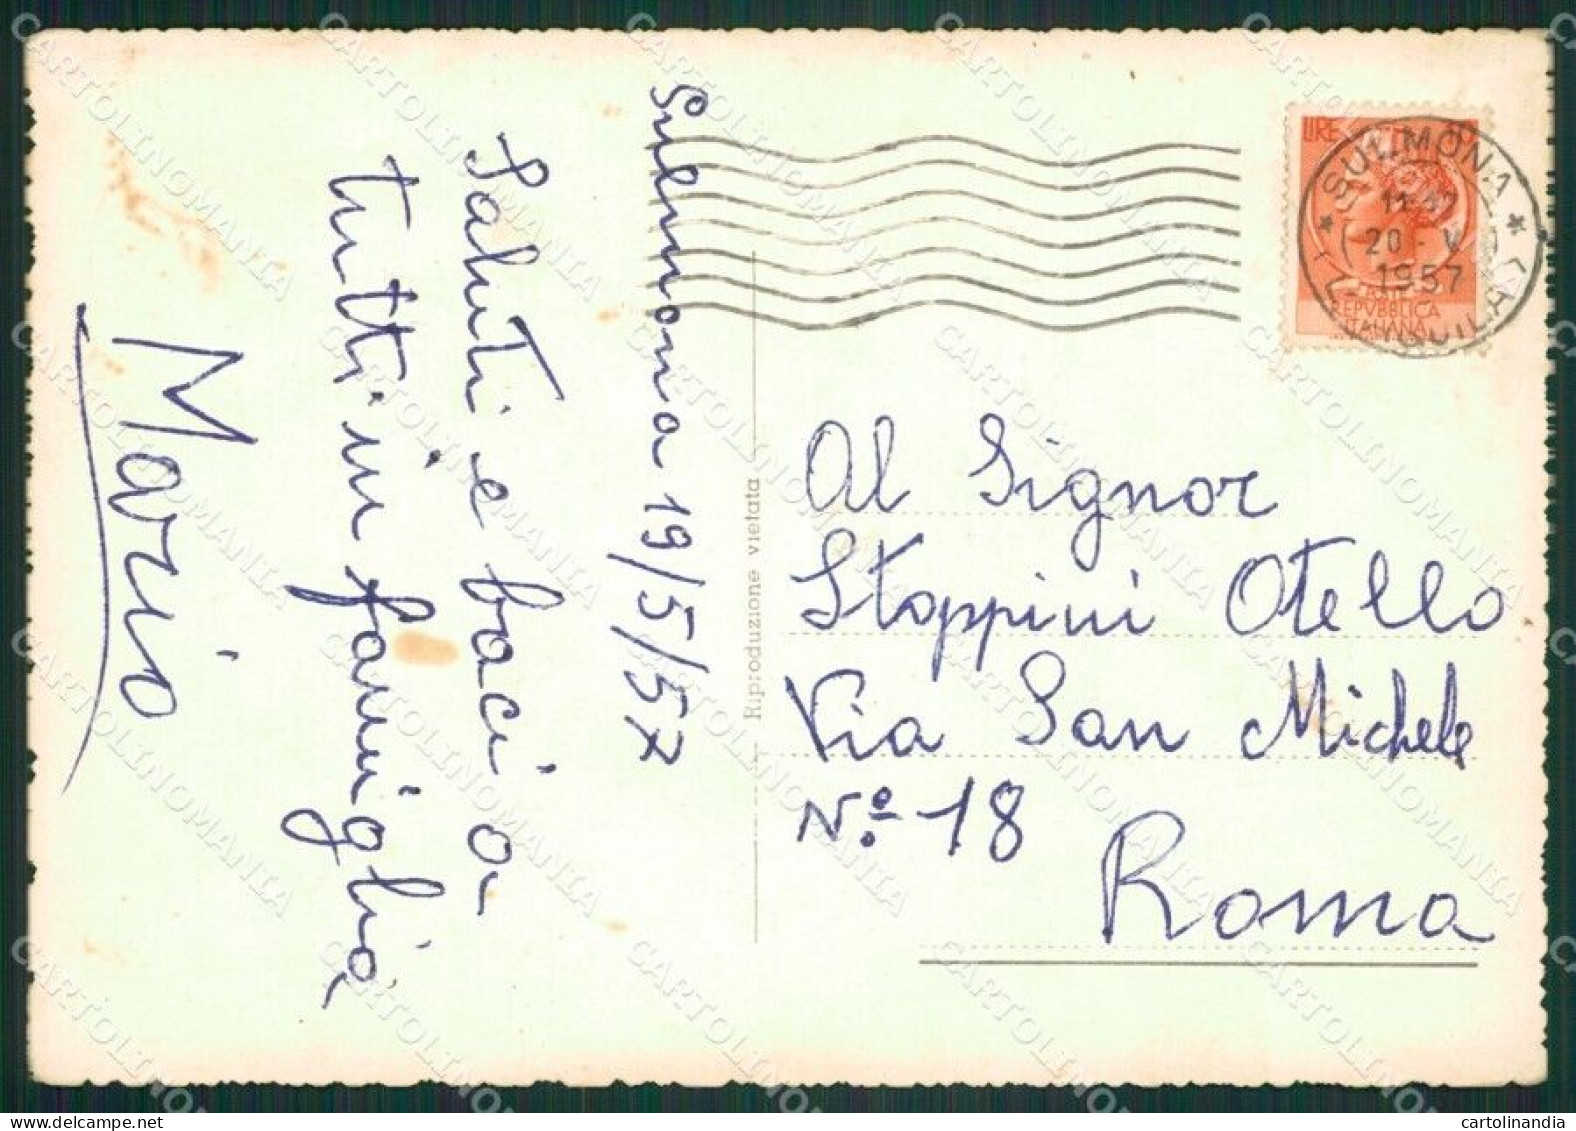 Sulmona 19/5/57
Saluti e baci a
tutti in famiglia
Mario
Riproduzione vietata
LIRE 10
POSTE
REPVBBLICA
ITALIANA
SULMONA
20 - V
1957
(L'AQUILA)
Al Signor
Stoppini Otello
Via San Michele
Nº 18
Roma
CARTOLINOMANIA
cartolinandia